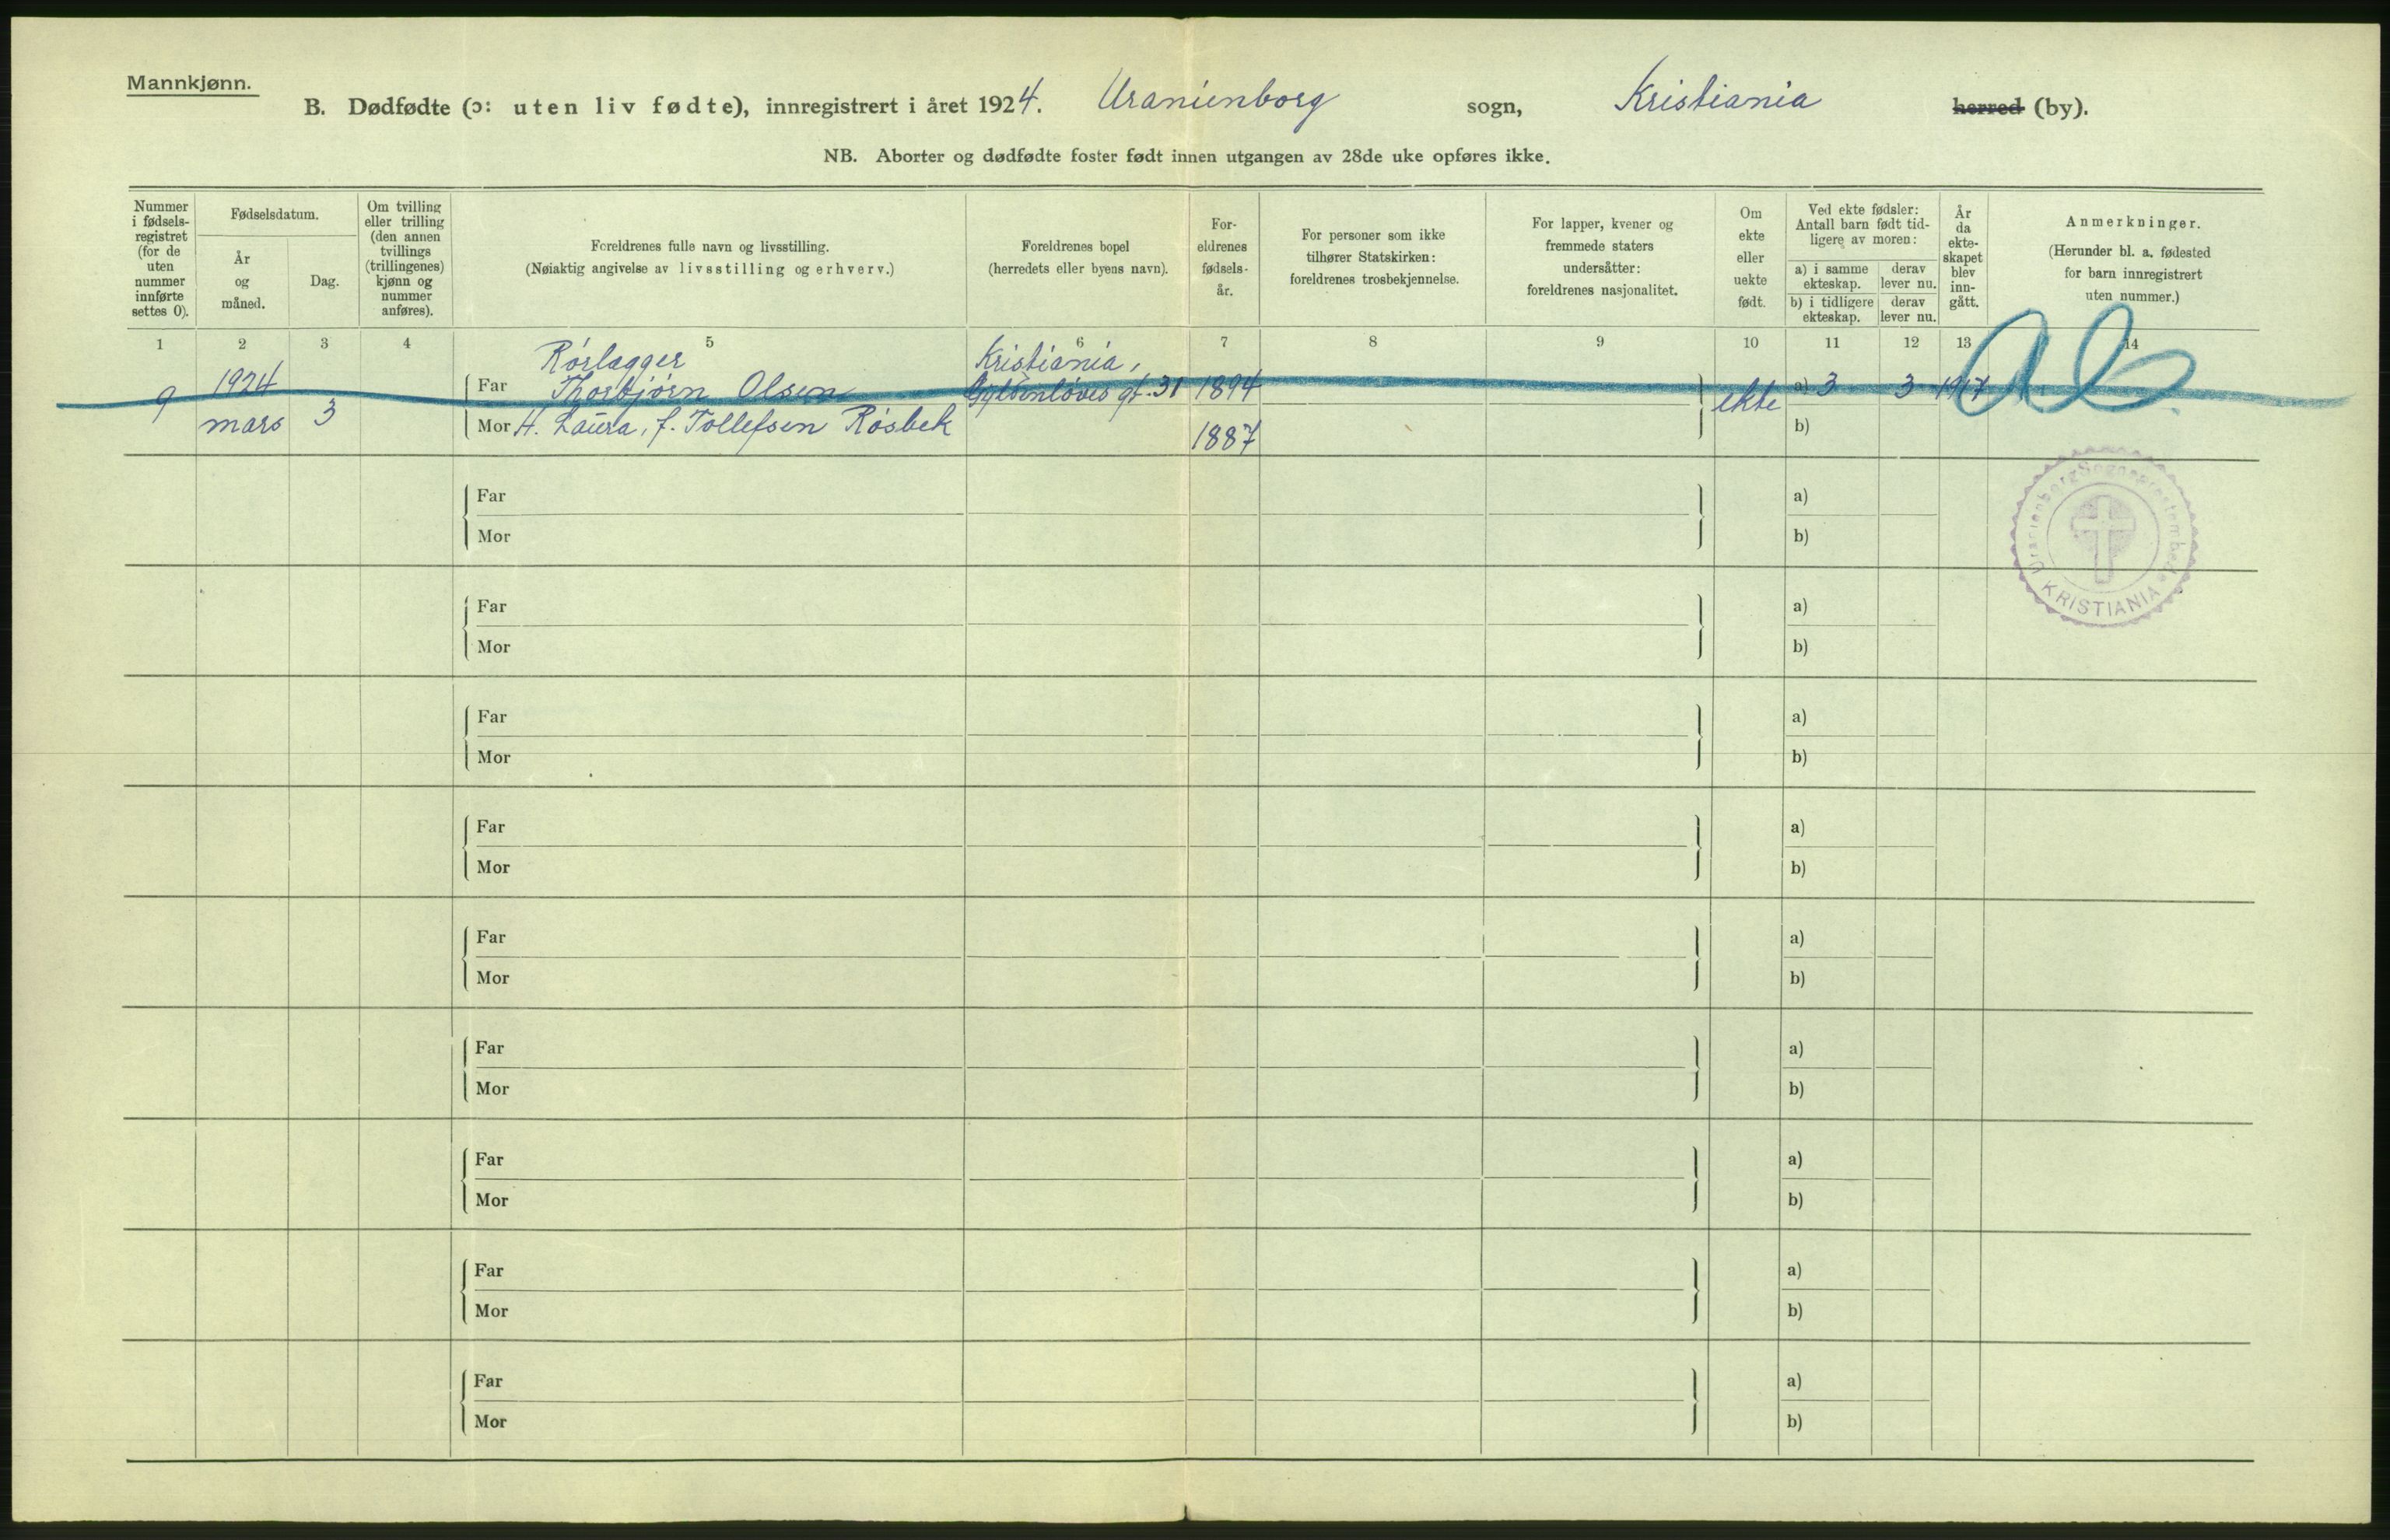 Mannkjønn.
B. Dødfødte (ɔ: uten liv fødte), innregistrert i året 1924. Uranienborg sogn, Kristiania herred (by).
NB. Aborter og dødfødte foster født innen utgangen av 28de uke opføres ikke.
Nummer i fødsels-registret (for de uten nummer innførte settes 0).
Fødselsdatum.
År og måned.
Dag.
Om tvilling eller trilling (den annen tvillings (trillingenes) kjønn og nummer anføres).
Foreldrenes fulle navn og livsstilling.
(Nøiaktig angivelse av livsstilling og erhverv.)
Foreldrenes bopel
(herredets eller byens navn).
For-eldrenes fødsels-år.
For personer som ikke tilhører Statskirken: foreldrenes trosbekjennelse.
For lapper, kvener og fremmede staters undersåtter: foreldrenes nasjonalitet.
Om ekte eller uekte født.
Ved ekte fødsler: Antall barn født tid-ligere av moren:
a) i samme ekteskap.
derav lever nu.
b) i tidligere ekteskap.
derav lever nu.
År da ekte-skapet blev inn-gått.
Anmerkninger.
(Herunder bl. a. fødested for barn innregistrert uten nummer.)
1 2 3 4 5 6 7 8 9 10 11 12 13 14
Rørlegger Kristiania,
9 1924 3 Far Thorbjørn Olsen Gyldenløves gt. 31 1894 ekte a) 3 3 1917
mars Mor H. Laura, f. Tollefsen Røsbek 1887 b)
Far a)
Mor b)
Far a)
Mor b)
Far a)
Mor b)
Far a)
Mor b)
Far a)
Mor b)
Far a)
Mor b)
Far a)
Mor b)
Far a)
Mor b)
Far a)
Mor b)
Uranienborg Sogneprestembede
KRISTIANIA